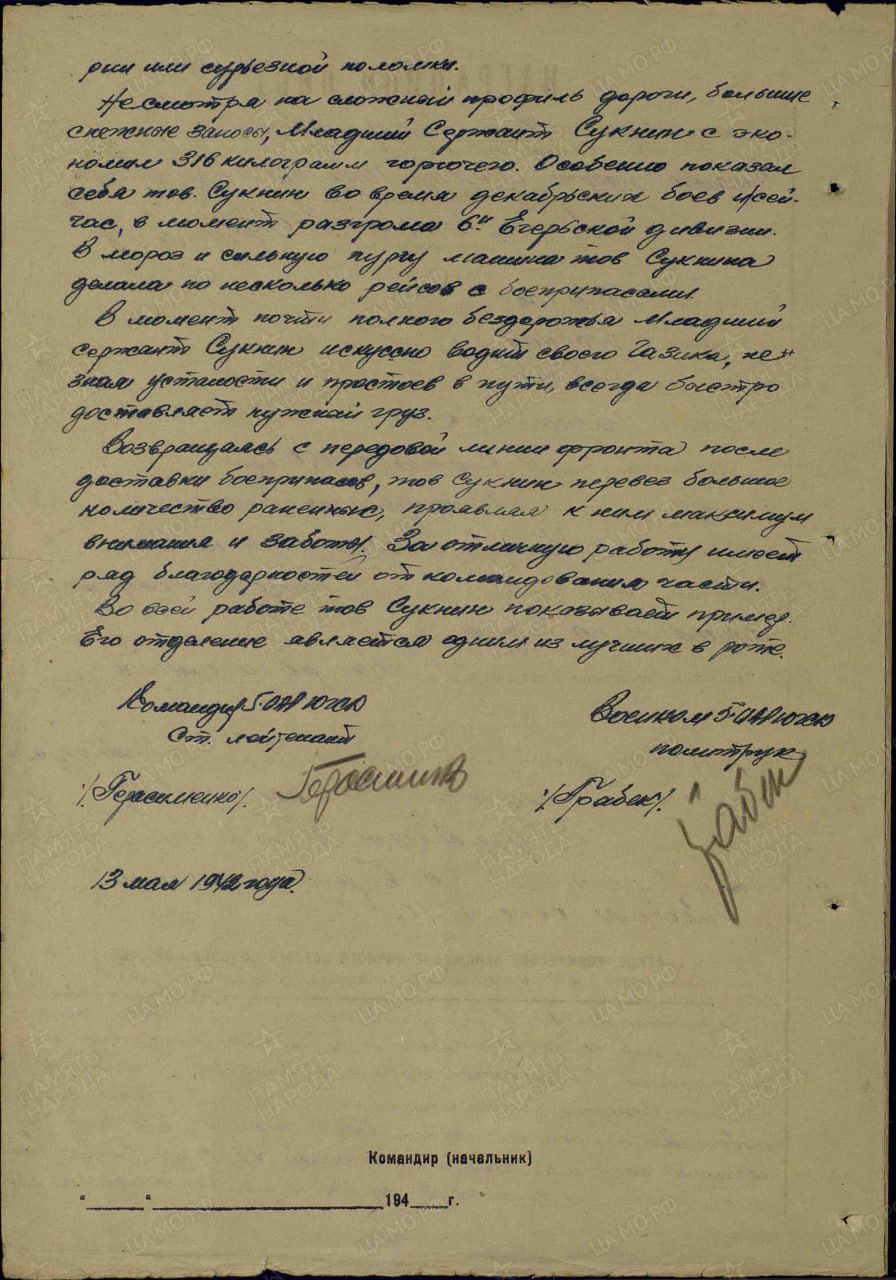 рии или сурьезной поломки.
Несмотря на сложный профиль дороги, большие
снежные заносы, Младший Сержант Сукнин с эко-
номил 316 килограмм горючего. Особенно показал
себя тов. Сукнин во время декабрьских боев и сей-
час, в момент разгрома 6й Егерьской дивизии.
В мороз и сильную пургу машина тов Сукнина
делала по несколько рейсов с боеприпасами.
В момент почти полного бездорожья Младший
сержант Сукнин искуссно водит своего Газика, не
зная усталости и простоев в пути, всегда быстро
доставляет нужный груз.
Возвращаясь с передовой линии фронта после
доставки боеприпасов, тов Сукнин перевез большое
количество раненных, проявляя к ним максимум
внимания и заботы. За отличную работу имеет
ряд благодарностей от командования части.
Во всей работе тов Сукнин показывает пример.
Его отделение является одним из лучших в роте.
Командир 5
Военком 5
Ст. лейтенант
политрук
/Герасименко/.
/Грабек/.
13 мая 1942 года.
Командир (начальник)
"____"____________________194____г.
ПАМЯТЬ НАРОДА
ЦА МО РФ